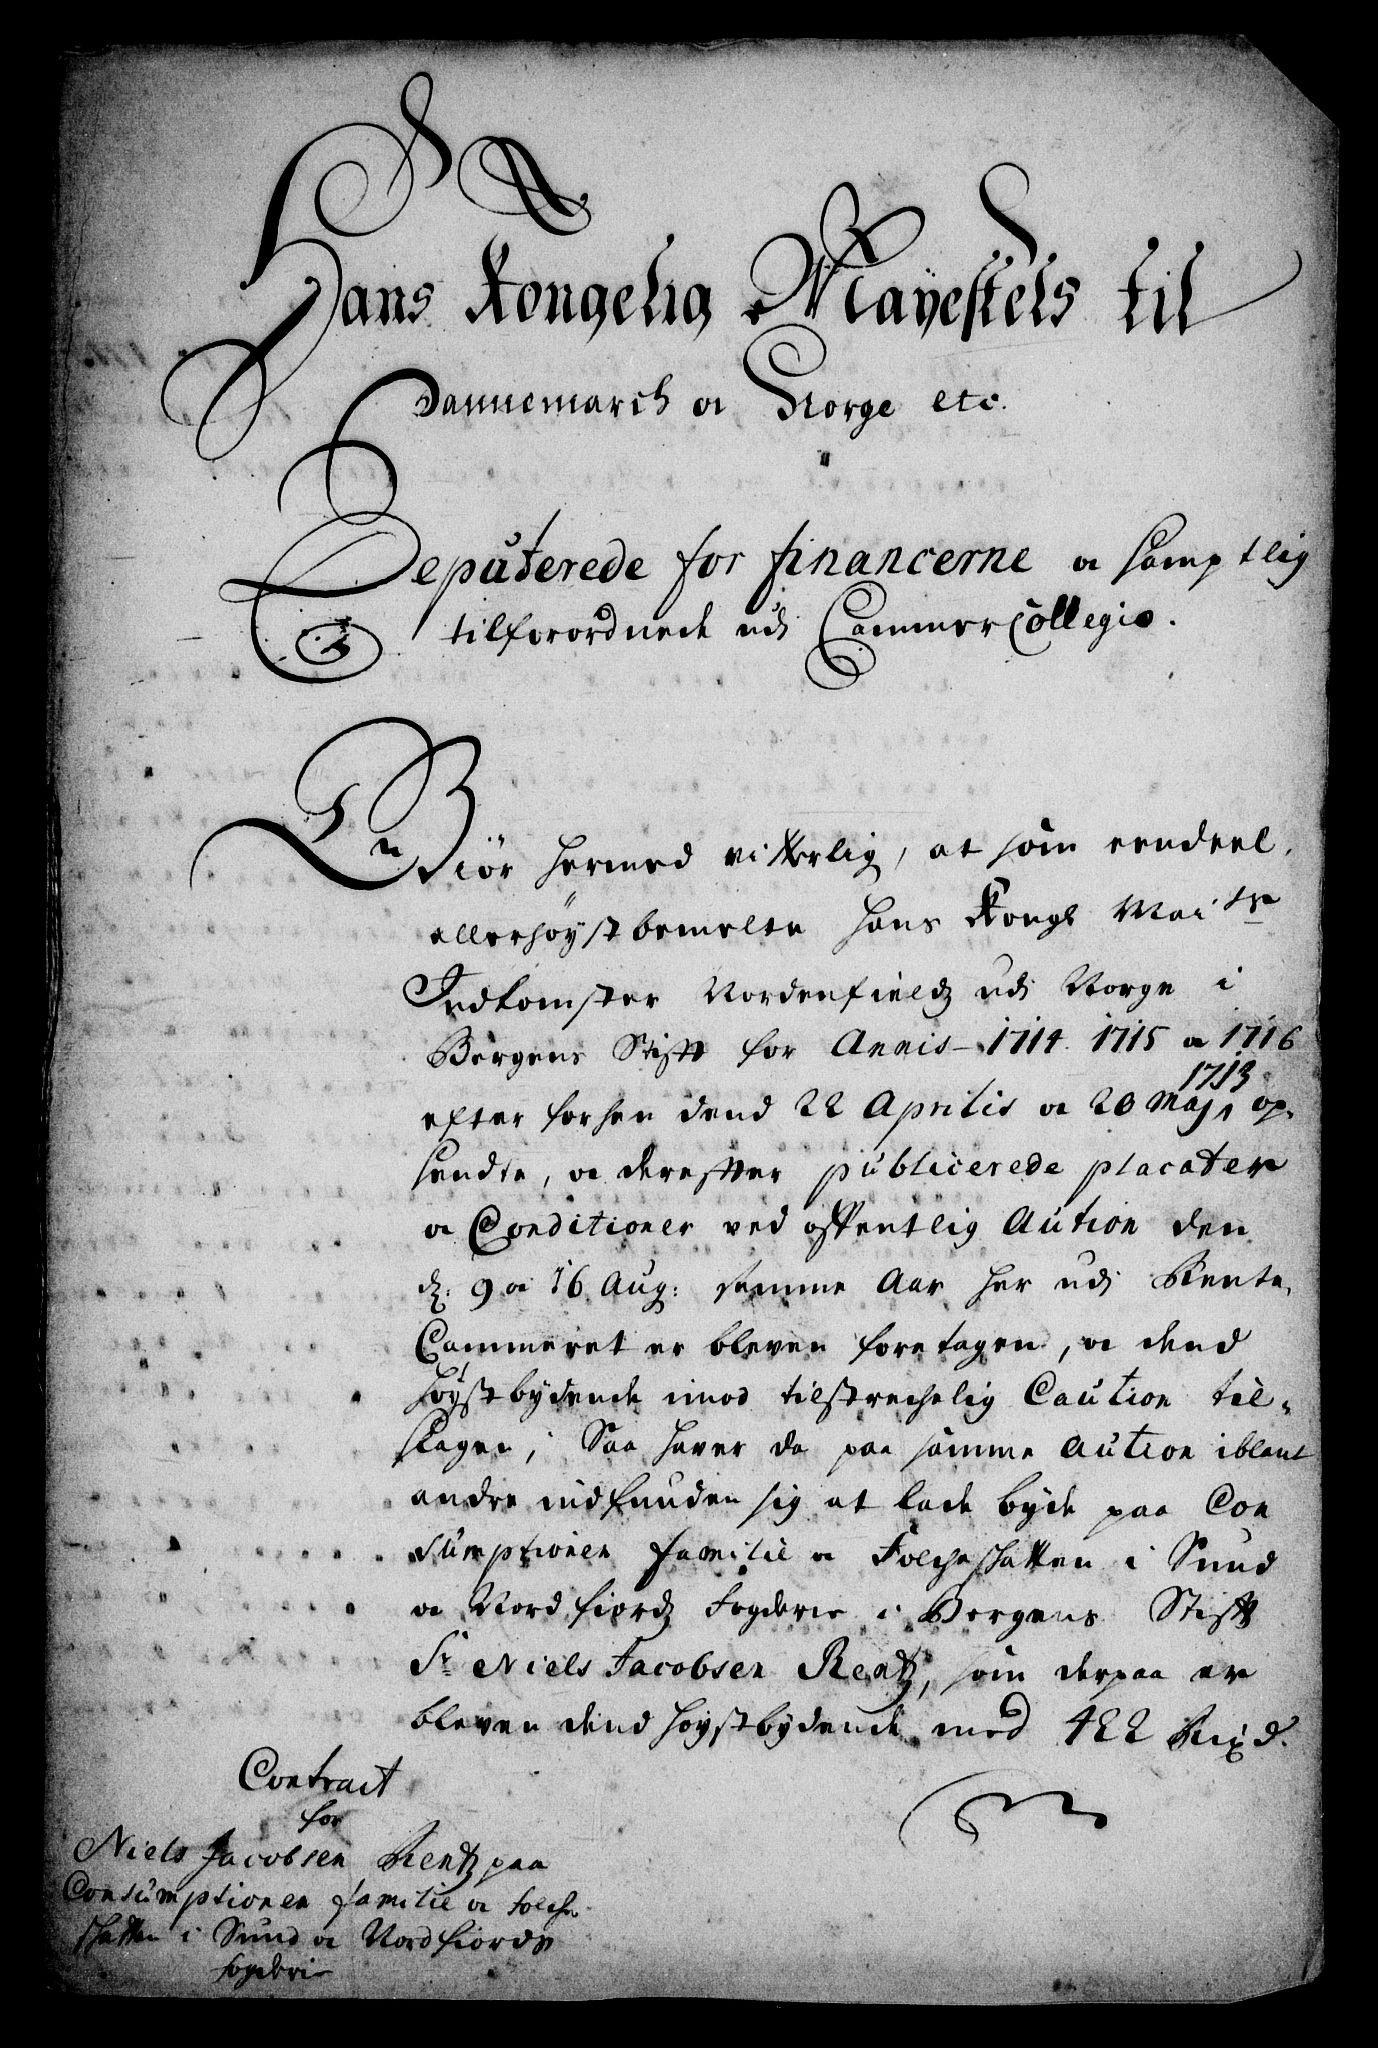 Hans Kongelig Mayestets til
Dannemarch oc Norge etc.
Deputerede for financerne oc samptlig
tilforordnede udi Cammer Collegio.
Giör hermed vitterlig, at som eendeel
allerhöystbemelte Hans Kongl Maits
Indkomster Nordenfields udi Norge i
Bergens Stift for Annis 1714. 1715 oc 1716
1713
efter forhen dend 22 Aprilis oc 20 Maji op-
sendte, oc derefter publicerede placater
oc Conditioner ved offentlig Aution den
d: 9 oc 16 Aug: samme Aar her udi Rente-
Cammeret er bleven foretagen, oc dend
höystbydende imod tilstrechelig Caution til-
slagen, Saa haver da paa samme Aution iblant
andre indfunden sig at lade byde paa Con
sumptionen familie oc Folcheskatten i Sund
oc Nordfiords Fogderie i Bergens Stift
Sr Niels Jacobsen Rentz, som derpaa er
bleven dend höystbydende med 422 Rixd.
Contract
for
Niels Jacobsen Rentz paa
Consumptionen familie oc folche
skatten i Sund oc Nordfiords
fogderie